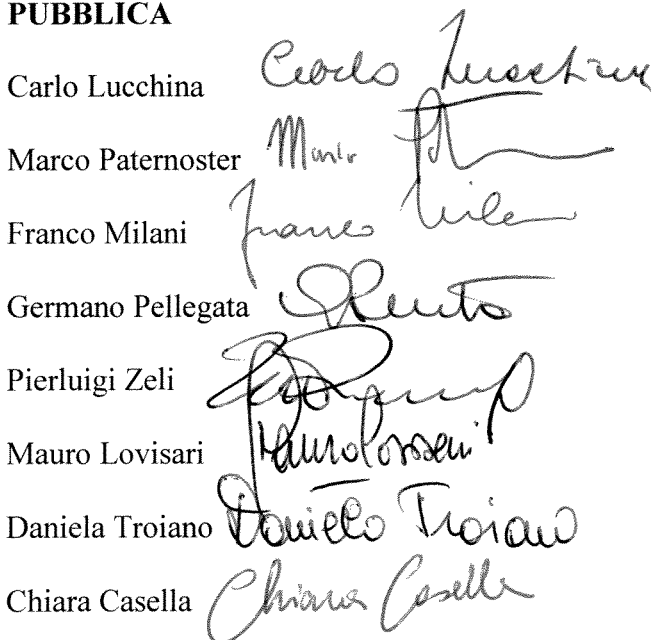 PUBBLICA
Carlo Lucchina Carlo Lucchina
Marco Paternoster Mario
Franco Milani Franco Milani
Germano Pellegata
Pierluigi Zeli
Mauro Lovisari Mauro Lovisari
Daniela Troiano Daniela Troiano
Chiara Casella Chiara Casella